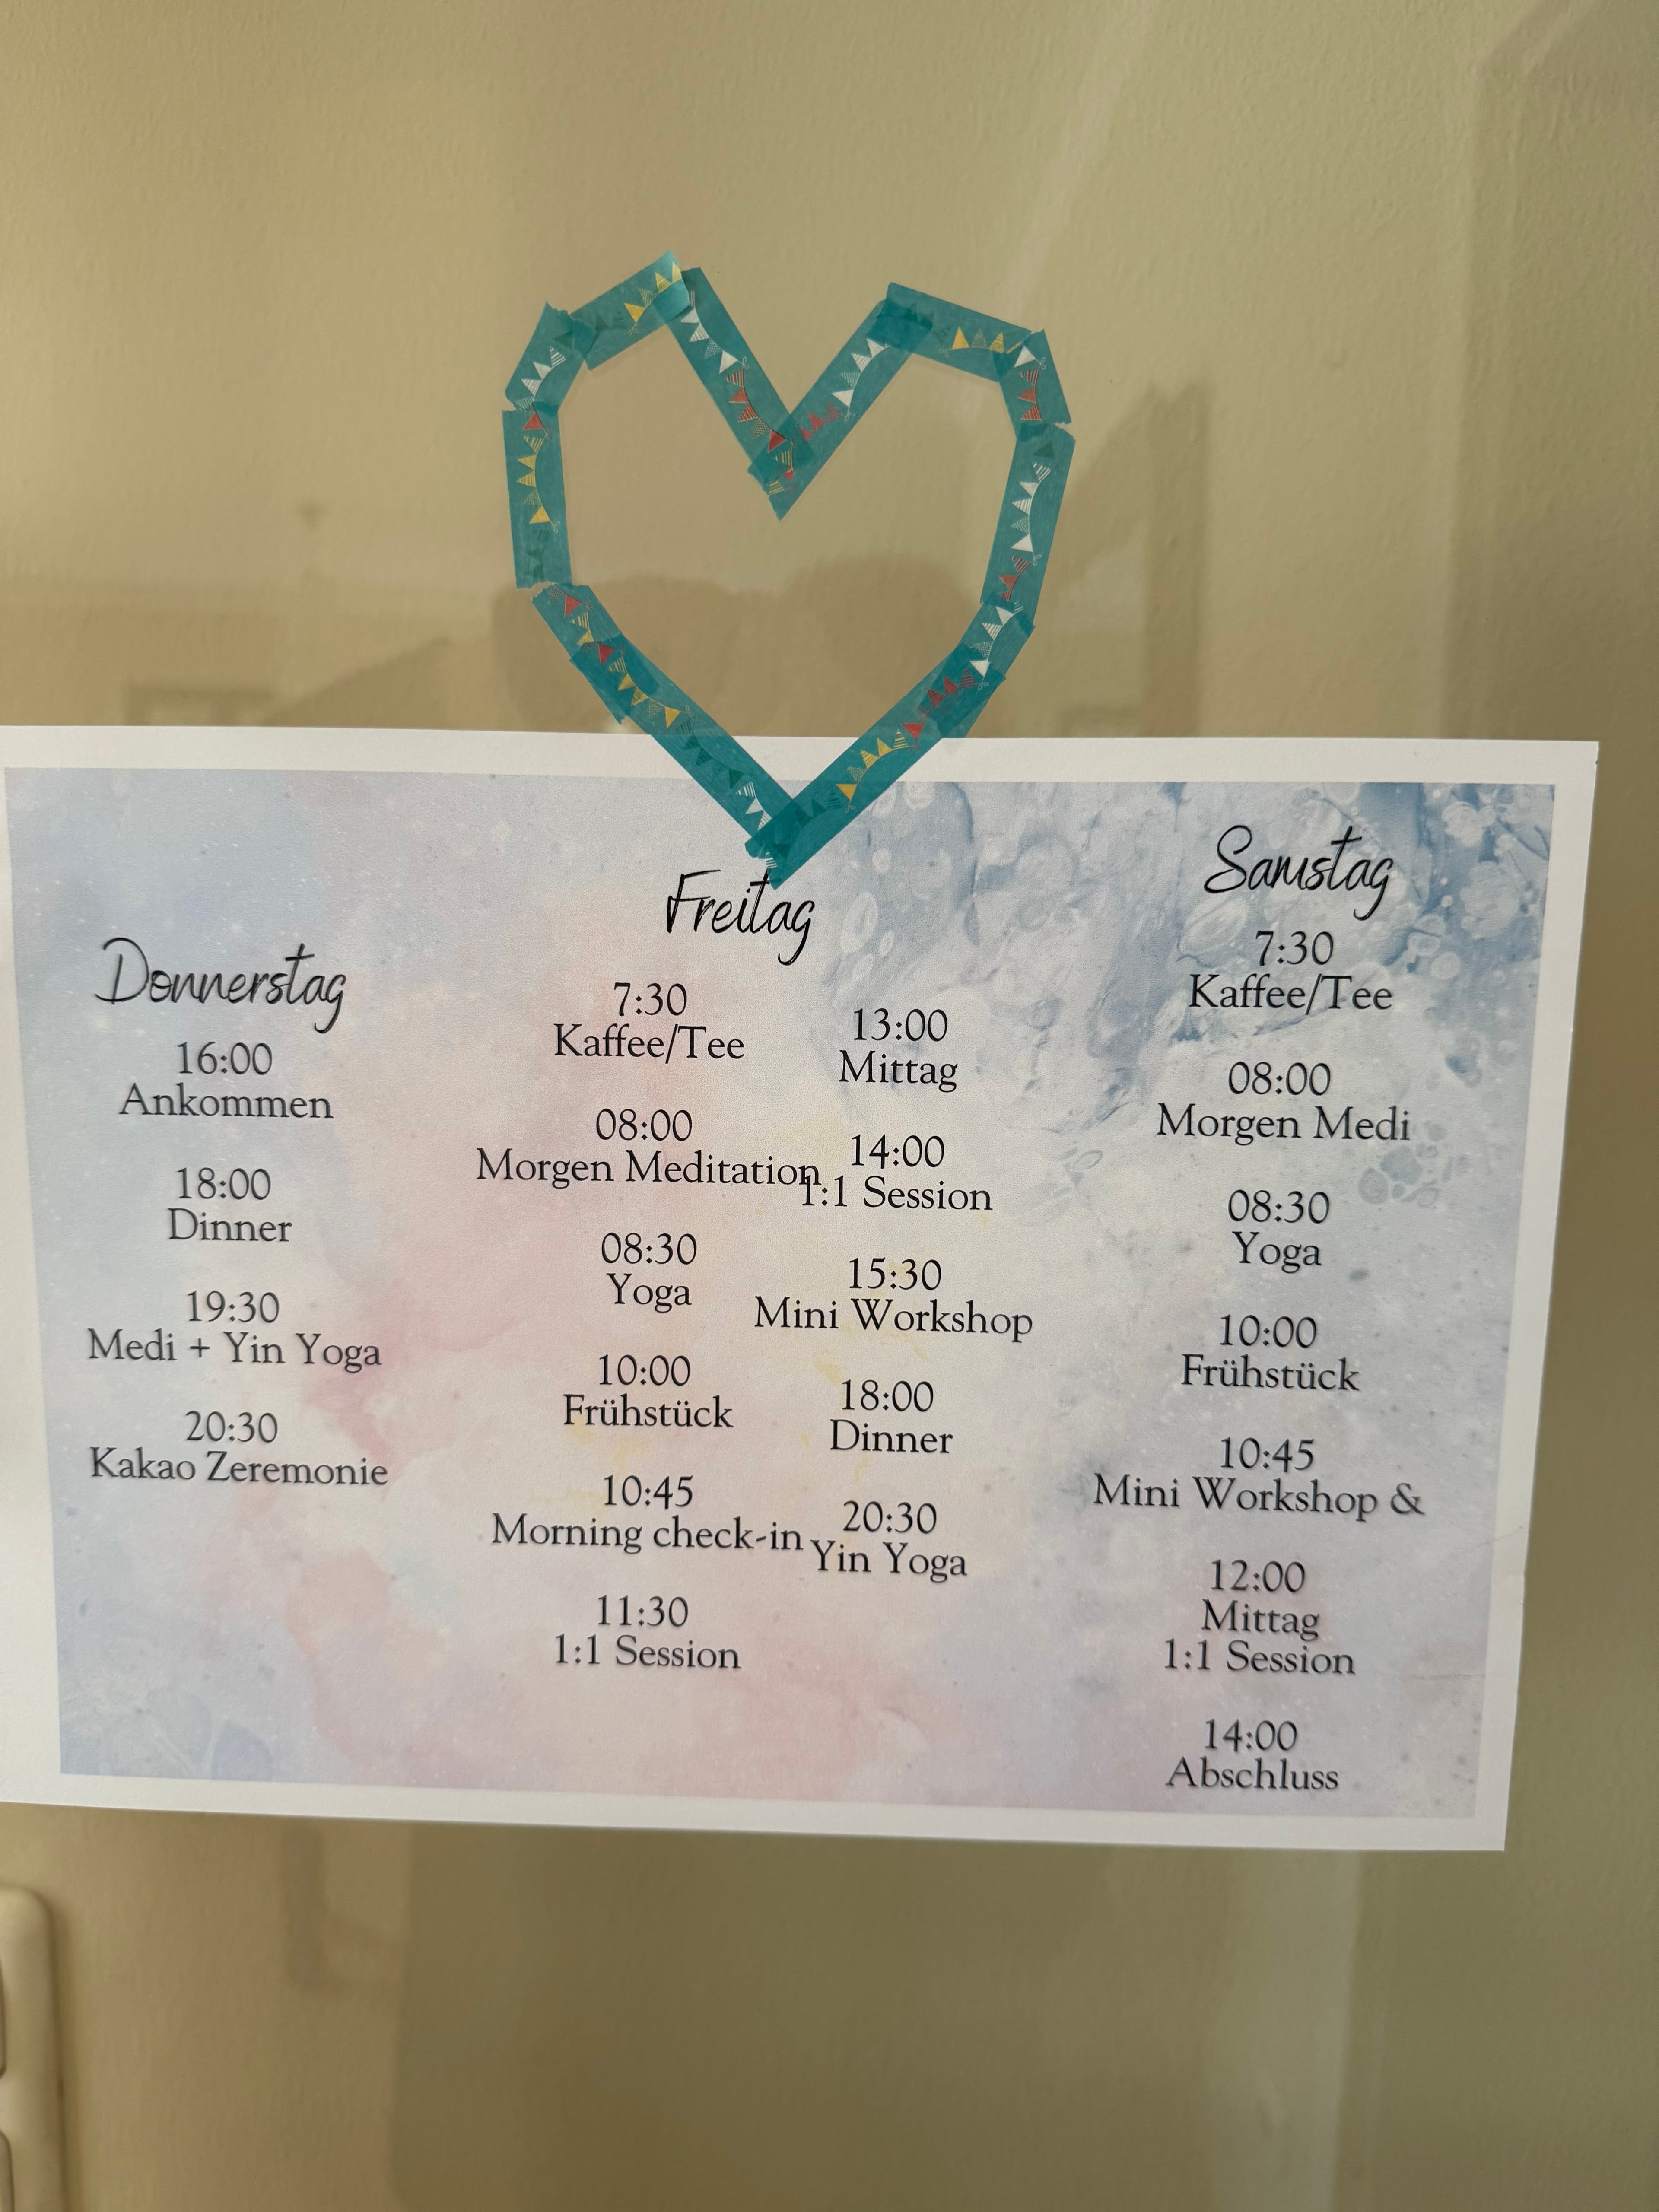 Donnerstag
16:00
Ankommen
18:00
Dinner
19:30
Medi + Yin Yoga
20:30
Kakao Zeremonie
Freitag
7:30
Kaffee/Tee
08:00
Morgen Meditation
08:30
Yoga
10:00
Frühstück
10:45
Morning check-in
11:30
1:1 Session
13:00
Mittag
14:00
1:1 Session
15:30
Mini Workshop
18:00
Dinner
20:30
Yin Yoga
Samstag
7:30
Kaffee/Tee
08:00
Morgen Medi
08:30
Yoga
10:00
Frühstück
10:45
Mini Workshop &
12:00
Mittag
1:1 Session
14:00
Abschluss